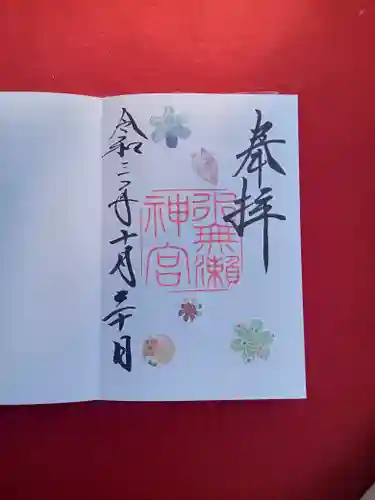 奉拝
水無瀬
神宮
令和三年十月三十日